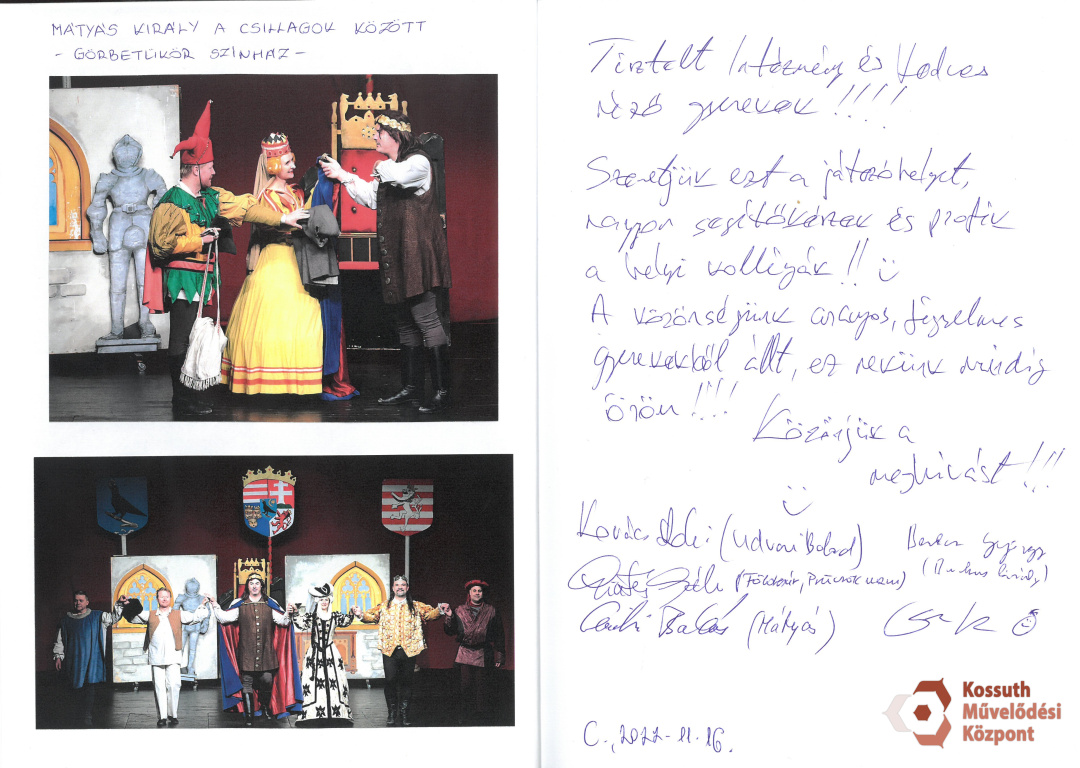 MÁTYÁS KIRÁLY A CSILLAGOK KÖZÖTT
- GÖRBETÜKÖR SZÍNHÁZ -
Tisztelt Intézmény és Kedves
néző gyerekek !!!!
Szeretjük ezt a játszóhelyet,
nagyon segítőkészek és profik
a helyi kollégák !!
A közönségünk aranyos, figyelmes
gyerekekből állt, ez nekünk mindig
öröm !!!
Köszönjük a
meghívást !!!
Kovács (Udvari Bolond)
(Földesúr,
Balázs (Mátyás)
C., 2022-11-16.
Kossuth
Művelődési
Központ